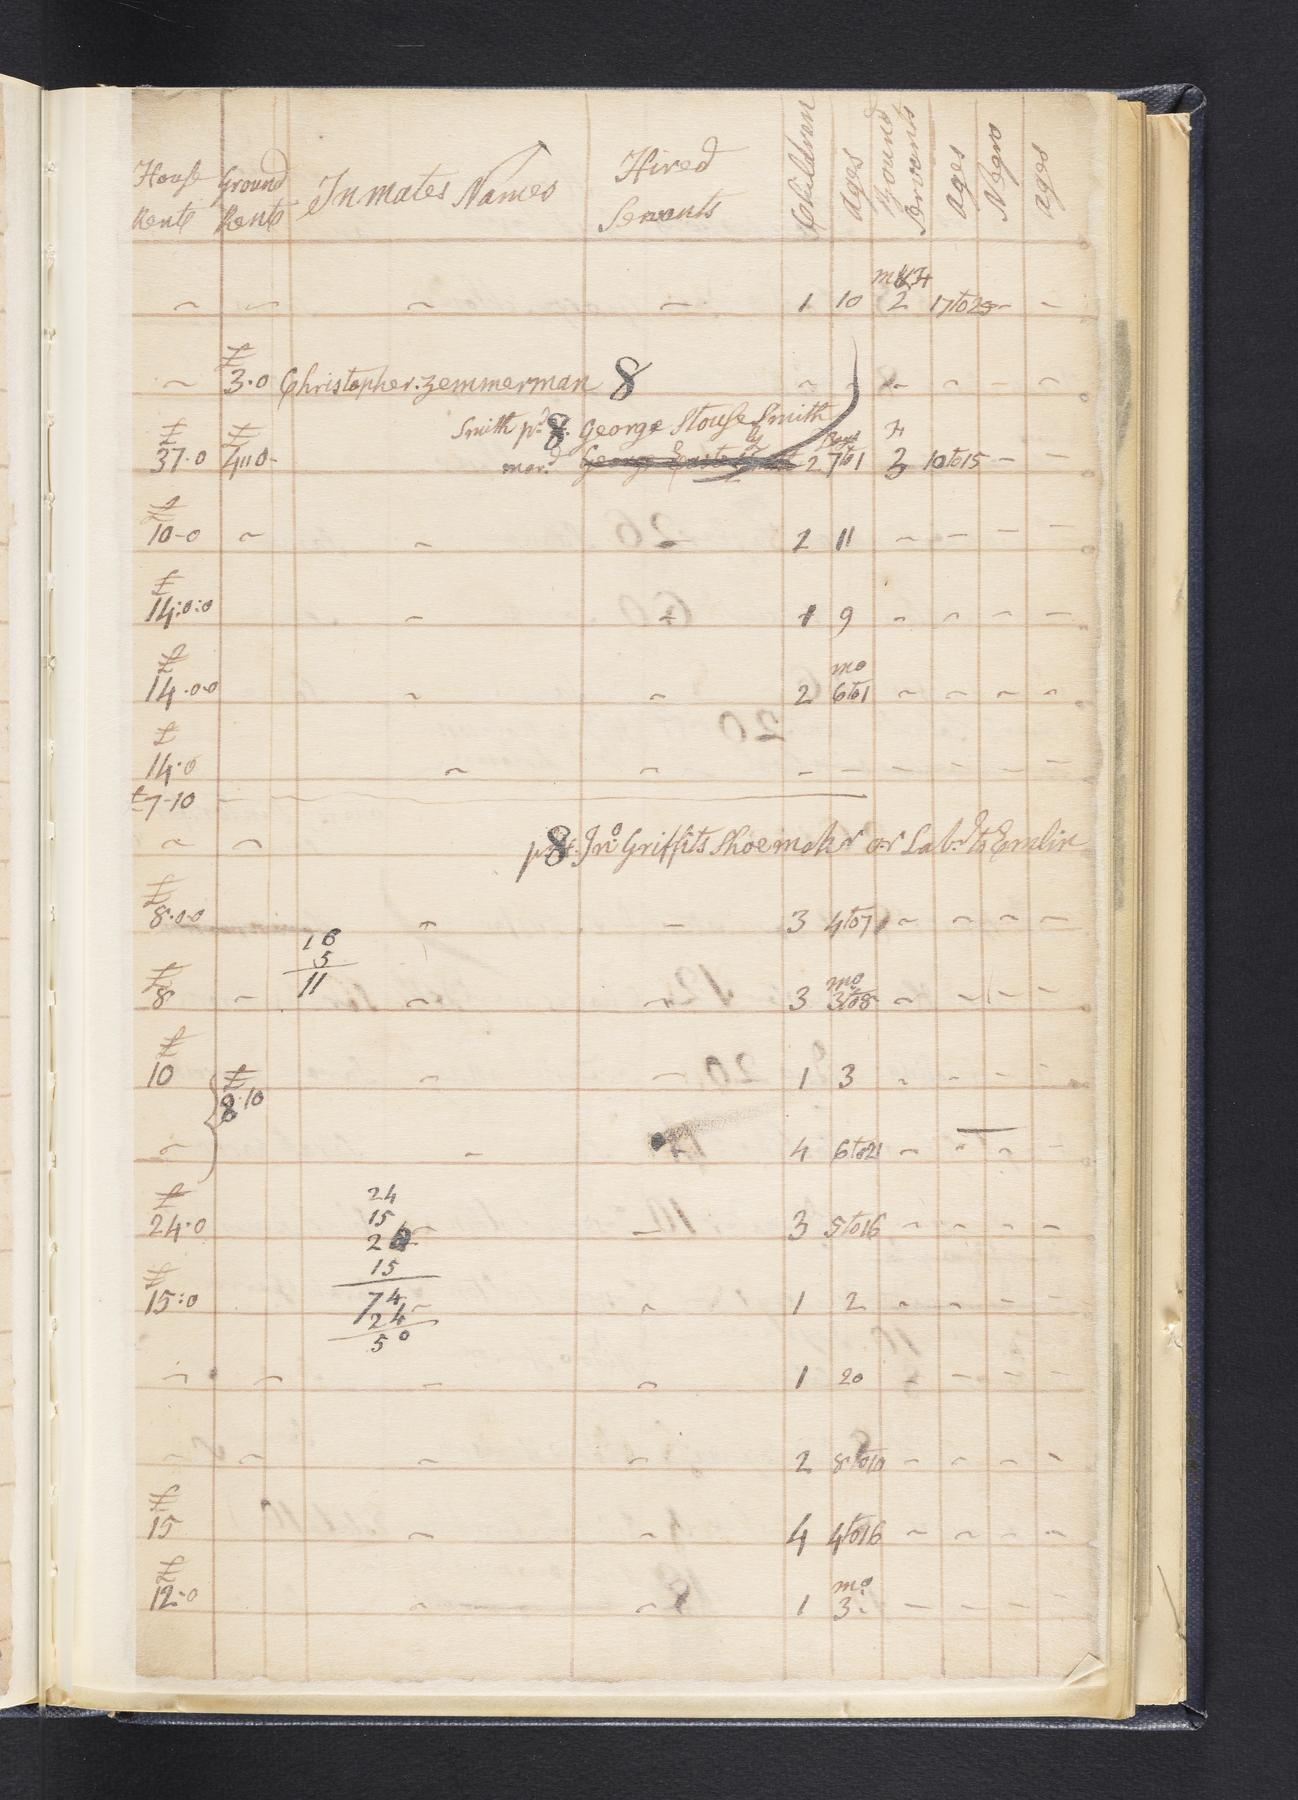 House Rent Ground Rent Inmates Names Hired Servants Children Ages Bound Servants Ages Negro ages
M & F
~ ~ ~ ~ 1 10 2 17 to 25 - -
£
~ 3.0 Christopher Zemmerman 8 ~ ~ ~ ~ - ~
Smith pd 8 George Stouse Smith
£ £ F
37.0 4"0- mard George 2 7 to 1 3 10 to 15 - -
£
10-0 ~ ~ 2 11 ~ - - -
£
14:0:0 ~ 1 9 ~ ~ ~ -
£ mo
14.0-0 ~ ~ 2 6 to 1 ~ ~ ~ ~
£
14.0 ~ ~ - - - - - -
£7-10 -
~ ~ 8 Jno Griffits Shoemakr or Labr to Emlin
£
8.0-0 ~ - 3 4 to 7 ~ ~ ~ -
16
5
11
£ mo
8 ~ ~ ~ 3 3 to 8 ~ - - -
£
10 ~ ~ 1 3 ~ - - -
£
8.10
~ ~ 4 6 to 21 ~ ~ ~ -
£
24.0 - 3 5 to 16 ~ ~ ~ ~
24
15
15
74
24
50
£
15:0 ~ 1 2 ~ ~ - -
~ ~ ~ ~ 1 20 - - - -
~ ~ ~ ~ 2 8 to 10 ~ ~ ~ -
£
15 ~ ~ 4 4 to 16 ~ ~ ~ ~
£ mo
12-0 ~ ~ 1 3 - - - -